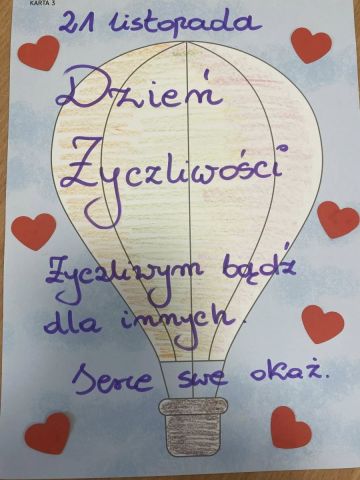 KARTA 3
21 listopada
Dzień
Życzliwości
Życzliwym bądź
dla innych.
Serce swe okaż.